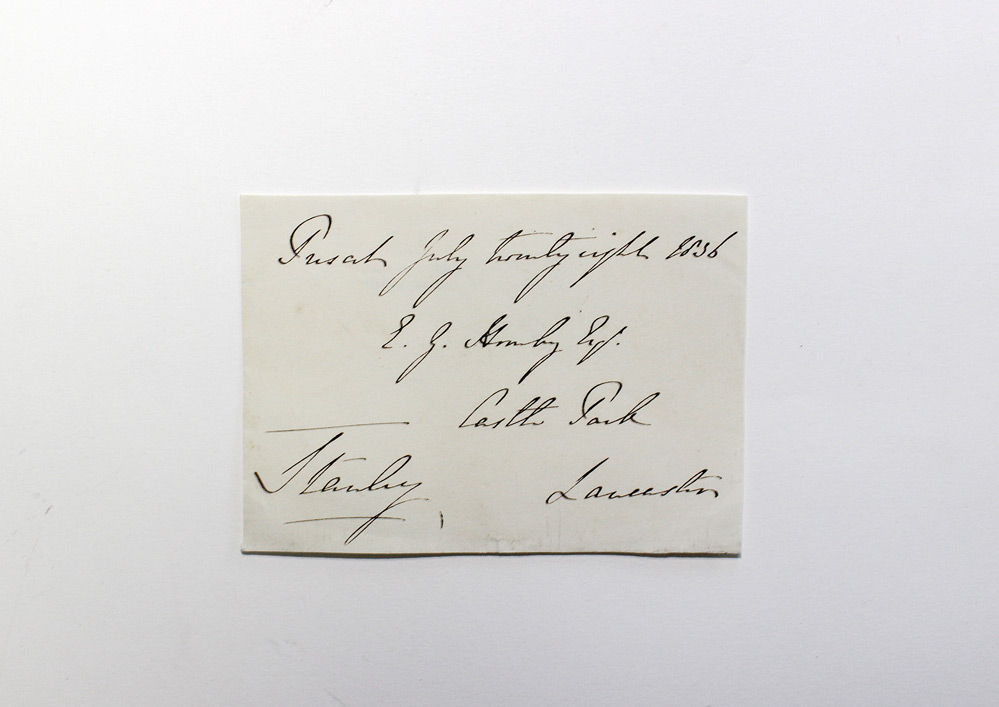 Prescot July twenty eight 1836
E. G. Hornby Esqr.
Castle Park
Stanley
Lancaster